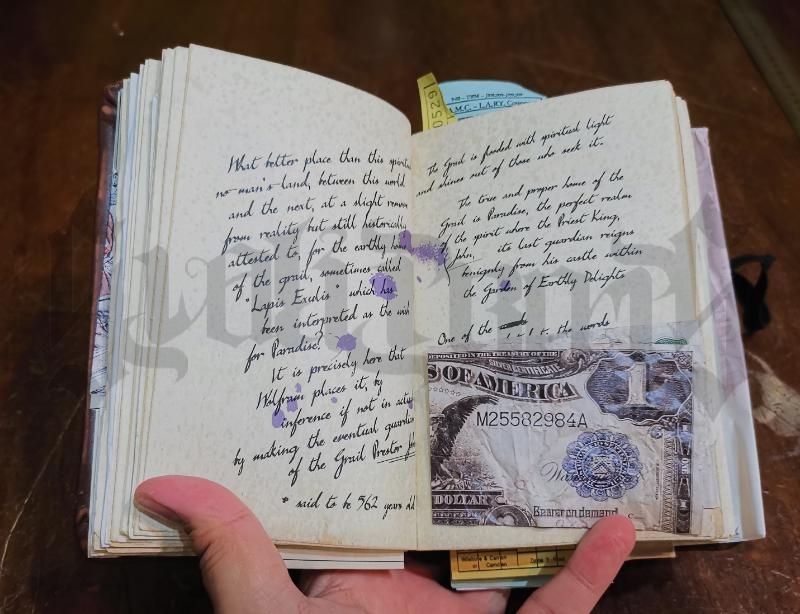 What better place than this
no-man's-land, between this world
and the next, at a slight
from reality but still historically
attested to, for the earthly
of the grail, sometimes called
"Lapis Exilis" which has
been interpreted as the
for Paradise?
It is precisely here that
Wolfram places it, by
inference if not in
by making the eventual
of the Grail Prester
* said to be 562 years old
0529
A.M.C. - L.A.RY.
The Grail is flooded with spiritual light
and shines out of those who seek it.
The true and proper home of the
Grail is Paradise, the perfect realm
of the spirit where the Priest King,
John, its last guardian reigns
benignly from his castle within
the Garden of Earthly Delights
One of the
the words
DEPOSITED IN THE TREASURY OF THE
SILVER CERTIFICATE
S OF AMERICA
1
M25582984A
DOLLAR
Bearer on demand
Wilshire & Carson
or Camden
Zone 3